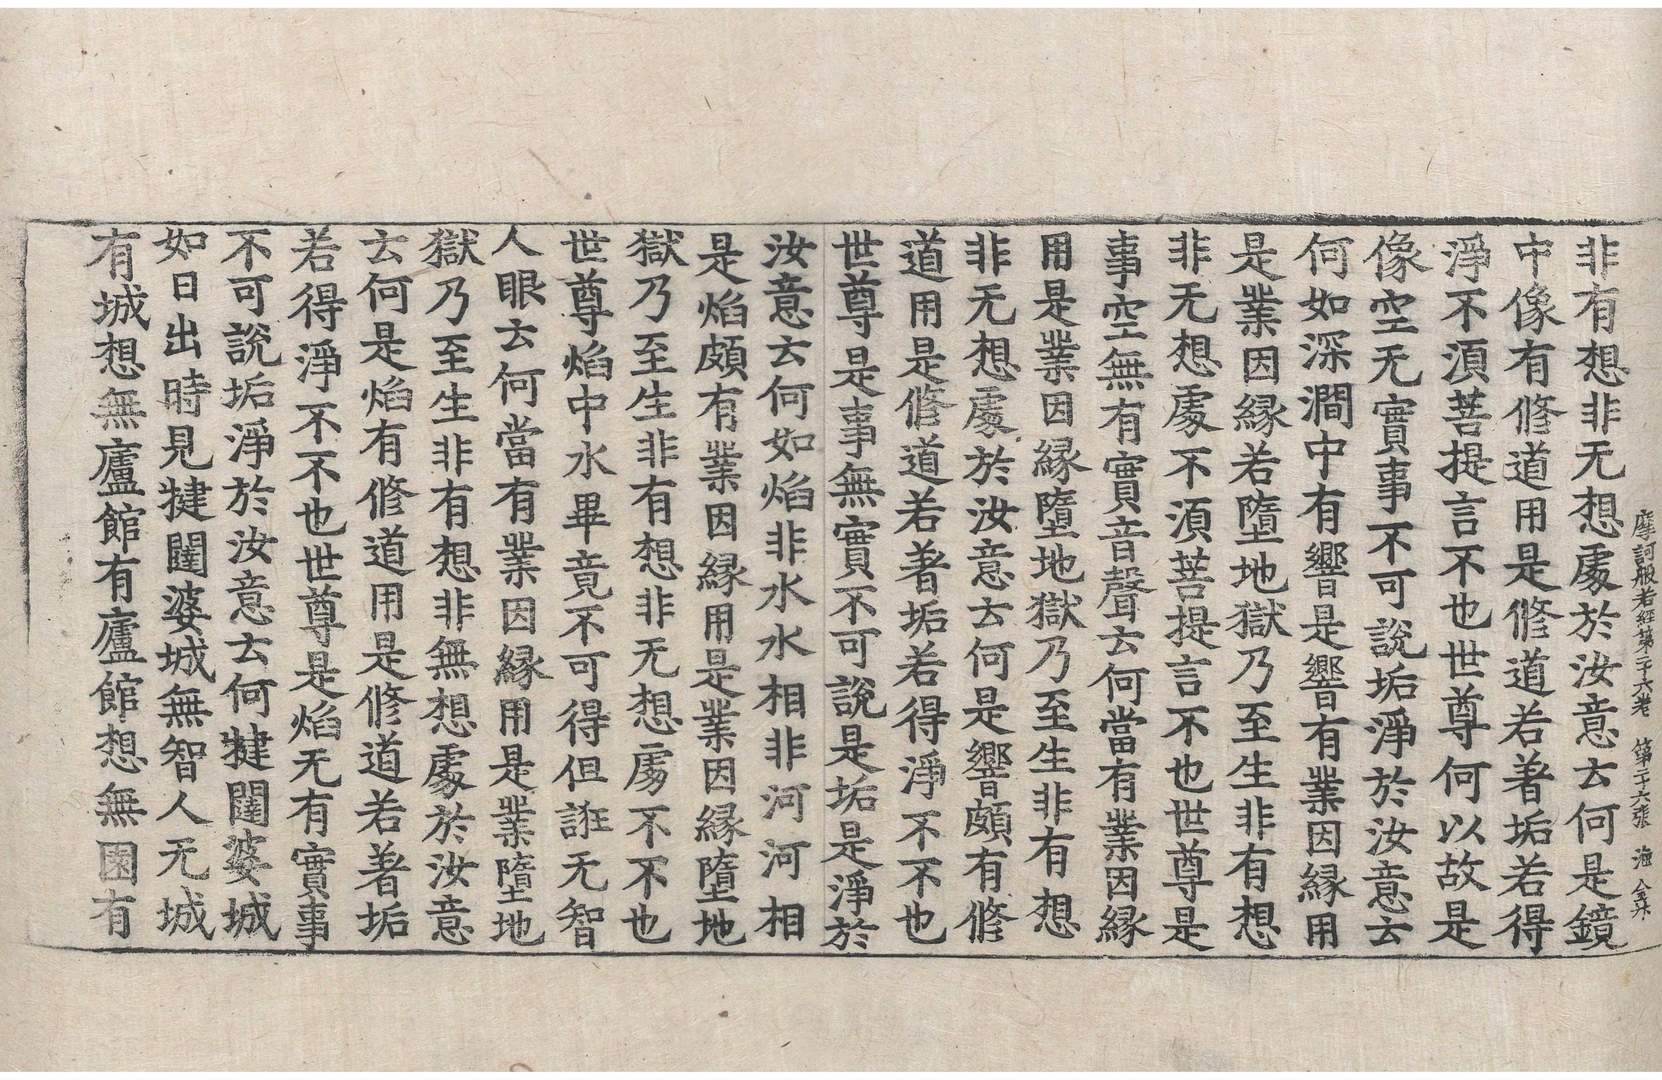 摩訶般若經第二十六卷 第二十六張 海
非有想非无想處於汝意云何是鏡
中像有修道用是修道若著垢若得
淨不須菩提言不也世尊何以故是
像空无實事不可說垢淨於汝意云
何如深澗中有響是響有業因緣用
是業因緣若墮地獄乃至生非有想
非无想處不須菩提言不也世尊是
事空無有實音聲云何當有業因緣
用是業因緣墮地獄乃至生非有想
非无想處於汝意云何是響頗有修
道用是修道若著垢若得淨不不也
世尊是事無實不可說是垢是淨於
汝意云何如焰非水水相非河河相
是焰頗有業因緣用是業因緣墮地
獄乃至生非有想非无想處不不也
世尊焰中水畢竟不可得但誑无智
人眼云何當有業因緣用是業墮地
獄乃至生非有想非無想處於汝意
云何是焰有修道用是修道若著垢
若得淨不不也世尊是焰无有實事
不可說垢淨於汝意云何揵闥婆城
如日出時見揵闥婆城無智人无城
有城想無廬館有廬館想無園有